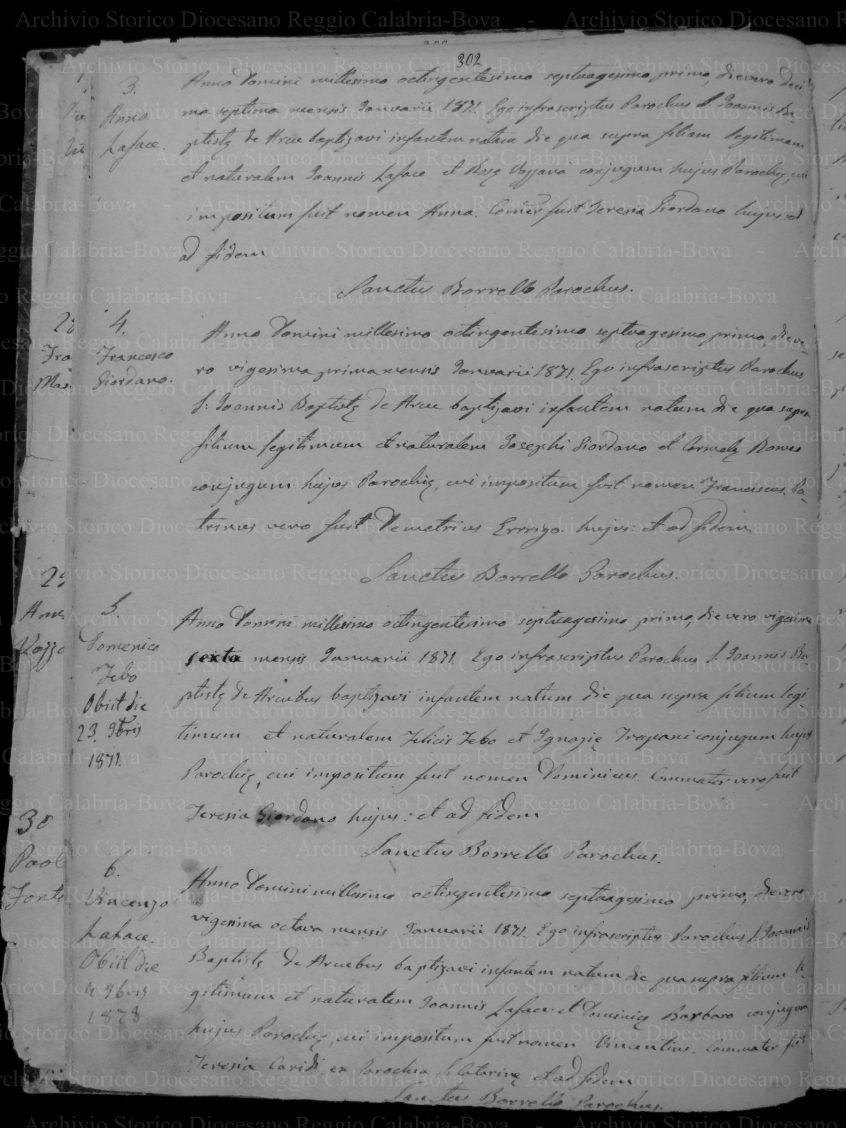 302
3.
Anna
Laface.
Anno Domini millesimo octingentesimo septuagesimo primo, die vero deci
ma septima mensis Januarii 1871. Ego infrascriptus Parochus S. Joannis Ba
ptistę de Arcu baptizavi infantem natam die qua supra filiam legitimam
et naturalem Joannis Laface et Rosę conjugum hujus Parochię, cui
impositum fuit nomen Anna. Comēr fuit Teresia Giordano hujus: et
ad fidem
Sanctus Borrello Parochus.
4.
Francesco
Giordano.
Anno Domini millesimo octingentesimo septuagesimo primo, die ve-
ro vigesima prima mensis Januarii 1871. Ego infrascriptus Parochus
S. Joannis Baptistę de Arcu baptizavi infantem natum die qua supra
filium legitimum et naturalem Josephi Giordano et Carmelę Romeo
conjugum hujus Parochię, cui impositum fuit nomen Franciscus. Pa-
trinus vero fuit Demetrius Errigo hujus: et ad fidem.
Sanctus Borrello Parochus.
5.
Domenico
Febo
Obiit die
23. 9bris
1871.
Anno Domini millesimo octingentesimo septuagesimo primo, die vero vigesima
sexta mensis Januarii 1871. Ego infrascriptus Parochus S. Joannis Ba
ptistę de Arcubus baptizavi infantem natum die qua supra filium legi
timum et naturalem Felicis Febo et Ignazię Trapani conjugum hujus
Parochię, cui impositum fuit nomen Dominicus. Commater vero fuit
Teresia Giordano hujus: et ad fidem
Sanctus Borrello Parochus.
6.
Vincenzo
Laface.
Obiit die
9bris
1878
Anno Domini millesimo octingentesimo septuagesimo primo, die vero
vigesima octava mensis Januarii 1871. Ego infrascriptus Parochus S. Joannis
Baptistę de Arcubus baptizavi infantem natum die qua supra filium le
gitimum et naturalem Joannis Laface et Dominicę Barbaro conjugum
hujus Parochię, cui impositum fuit nomen Vincentius. Commater fuit
Teresia Caridi ex Parochia S. Catarinę et ad fidem
Sanctus Borrello Parochus.